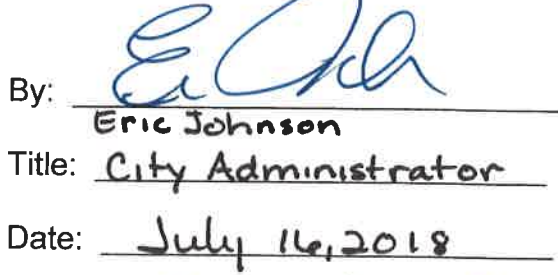 By:
Eric Johnson
Title: City Administrator
Date: July 16, 2018